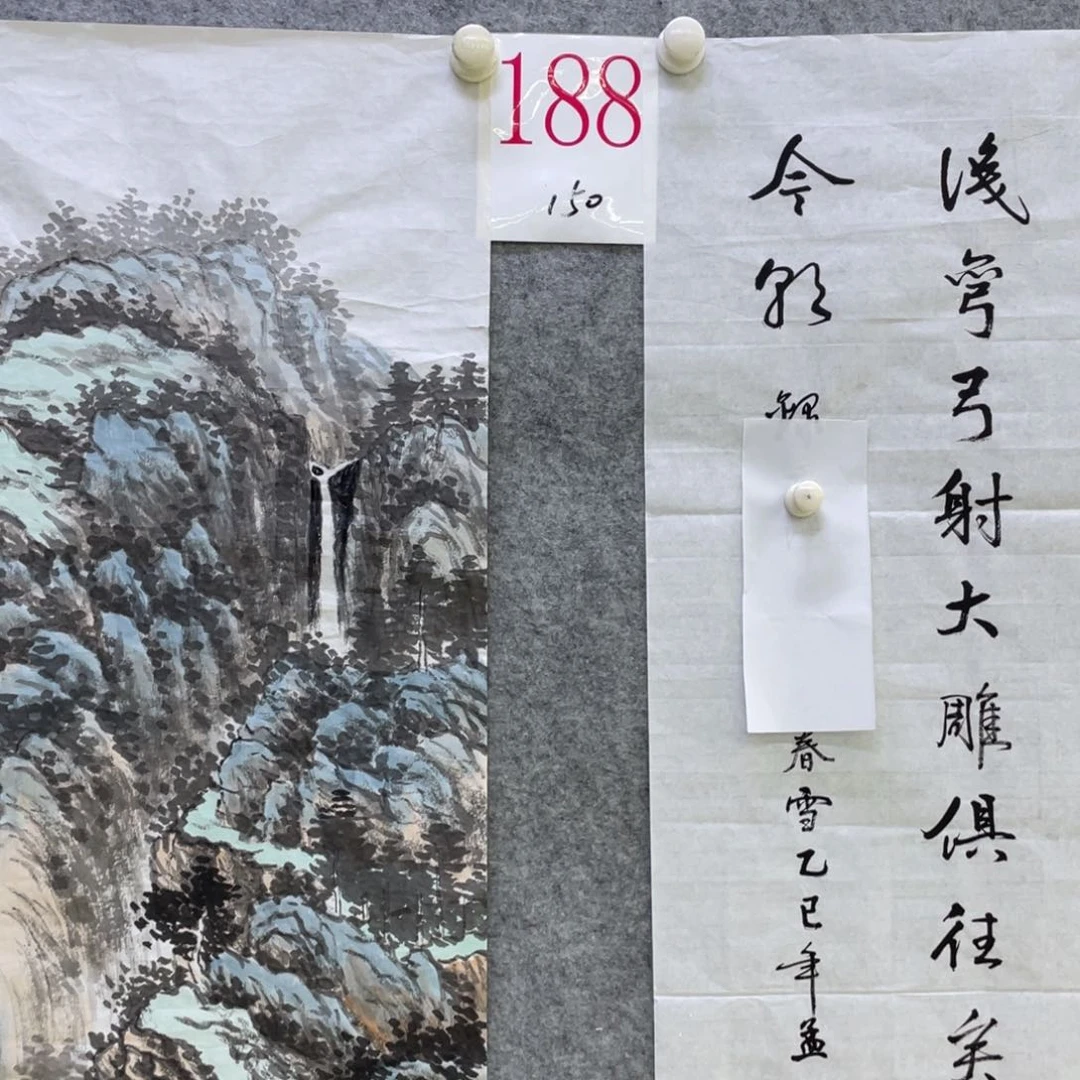 188
150
識弯弓射大雕俱往矣
今朝
春雪乙巳年孟